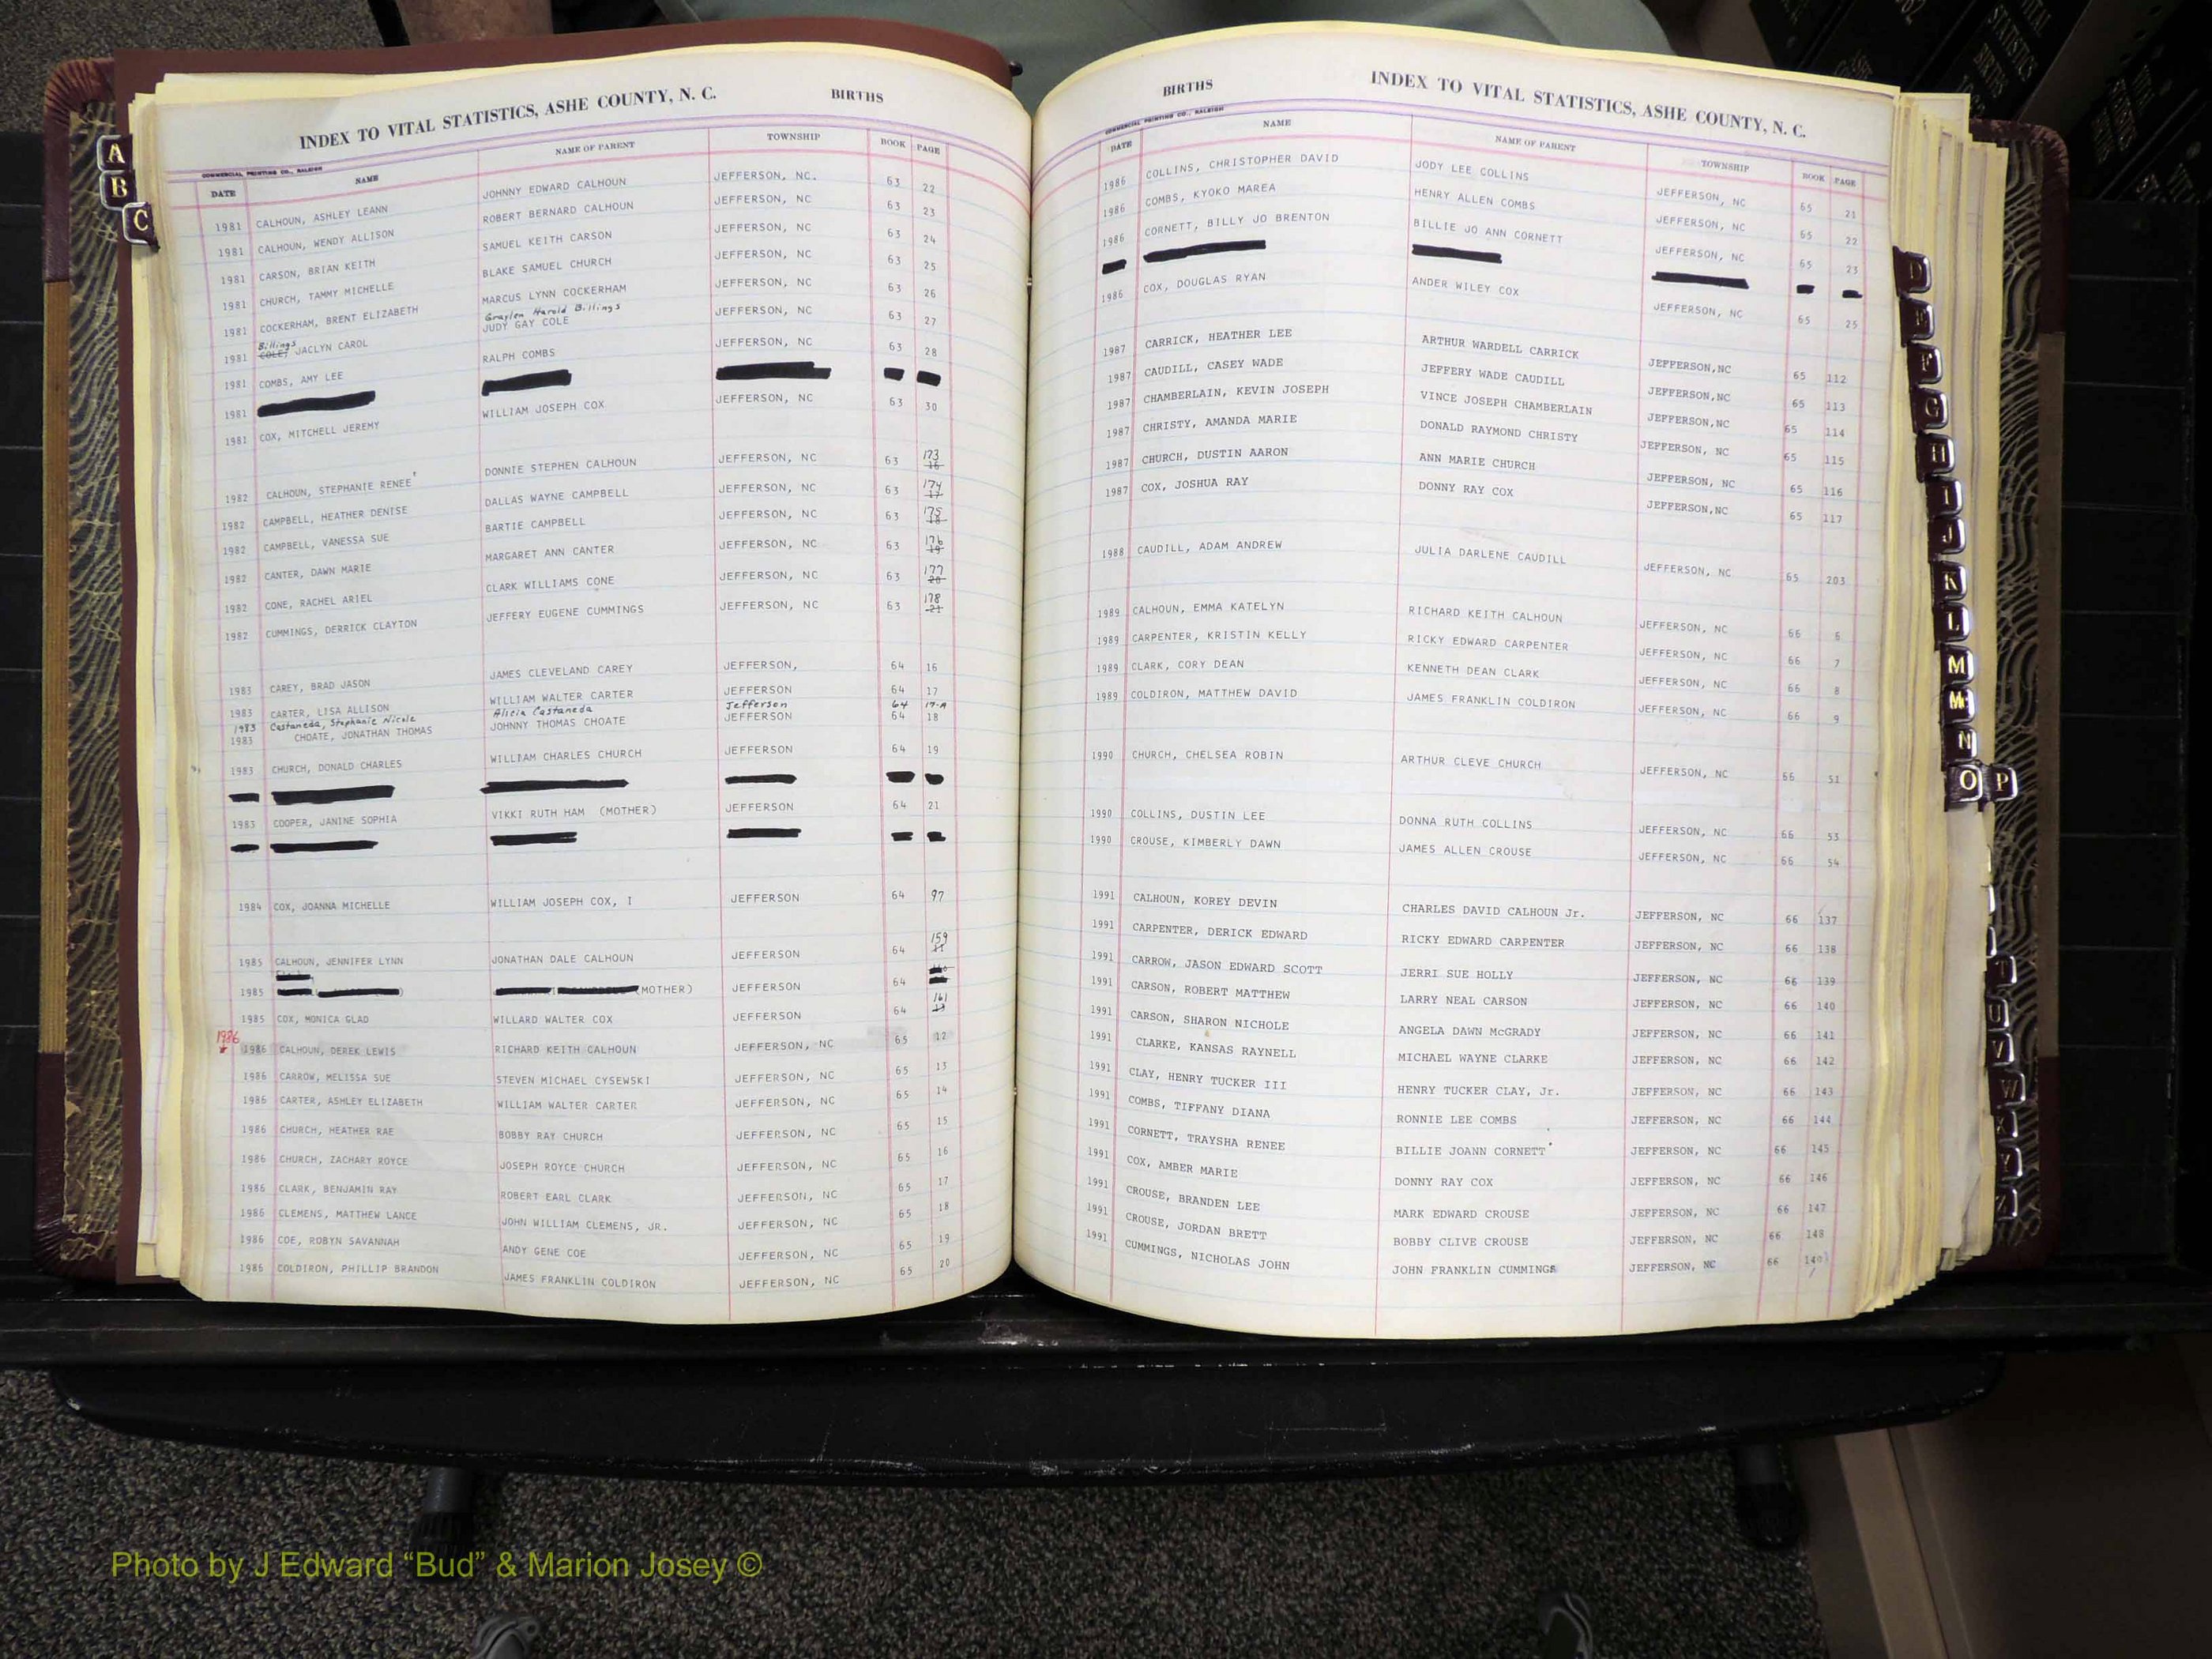 INDEX TO VITAL STATISTICS, ASHE COUNTY, N. C. BIRTHS
COMMERCIAL PRINTING CO., RALEIGH
DATE NAME NAME OF PARENT TOWNSHIP BOOK PAGE
1981 CALHOUN, ASHLEY LEANN JOHNNY EDWARD CALHOUN JEFFERSON, NC. 63 22
1981 CALHOUN, WENDY ALLISON ROBERT BERNARD CALHOUN JEFFERSON, NC 63 23
1981 CARSON, BRIAN KEITH SAMUEL KEITH CARSON JEFFERSON, NC 63 24
1981 CHURCH, TAMMY MICHELLE BLAKE SAMUEL CHURCH JEFFERSON, NC 63 25
1981 COCKERHAM, BRENT ELIZABETH MARCUS LYNN COCKERHAM JEFFERSON, NC 63 26
Billings Graylen Harold Billings
1981 COLE, JACLYN CAROL JUDY GAY COLE JEFFERSON, NC 63 27
1981 COMBS, AMY LEE RALPH COMBS JEFFERSON, NC 63 28
1981
1981 COX, MITCHELL JEREMY WILLIAM JOSEPH COX JEFFERSON, NC 63 30
1982 CALHOUN, STEPHANIE RENEE' DONNIE STEPHEN CALHOUN JEFFERSON, NC 63 173 16
1982 CAMPBELL, HEATHER DENISE DALLAS WAYNE CAMPBELL JEFFERSON, NC 63 174 17
1982 CAMPBELL, VANESSA SUE BARTIE CAMPBELL JEFFERSON, NC 63 175 18
1982 CANTER, DAWN MARIE MARGARET ANN CANTER JEFFERSON, NC 63 176 19
1982 CONE, RACHEL ARIEL CLARK WILLIAMS CONE JEFFERSON, NC 63 177 20
1982 CUMMINGS, DERRICK CLAYTON JEFFERY EUGENE CUMMINGS JEFFERSON, NC 63 178 21
1983 CAREY, BRAD JASON JAMES CLEVELAND CAREY JEFFERSON, 64 16
1983 CARTER, LISA ALLISON WILLIAM WALTER CARTER JEFFERSON 64 17
1983 Castaneda, Stephanie Nicole Alicia Castaneda Jefferson 64 17-A
1983 CHOATE, JONATHAN THOMAS JOHNNY THOMAS CHOATE JEFFERSON 64 18
1983 CHURCH, DONALD CHARLES WILLIAM CHARLES CHURCH JEFFERSON 64 19
1983 COOPER, JANINE SOPHIA VIKKI RUTH HAM (MOTHER) JEFFERSON 64 21
1984 COX, JOANNA MICHELLE WILLIAM JOSEPH COX, I JEFFERSON 64 97
1985 CALHOUN, JENNIFER LYNN JONATHAN DALE CALHOUN JEFFERSON 64 159 11
1985 (MOTHER) JEFFERSON 64
1985 COX, MONICA GLAD WILLARD WALTER COX JEFFERSON 64 161
1986
1986 CALHOUN, DEREK LEWIS RICHARD KEITH CALHOUN JEFFERSON, NC 65 12
1986 CARROW, MELISSA SUE STEVEN MICHAEL CYSEWSKI JEFFERSON, NC 65 13
1986 CARTER, ASHLEY ELIZABETH WILLIAM WALTER CARTER JEFFERSON, NC 65 14
1986 CHURCH, HEATHER RAE BOBBY RAY CHURCH JEFFERSON, NC 65 15
1986 CHURCH, ZACHARY ROYCE JOSEPH ROYCE CHURCH JEFFERSON, NC 65 16
1986 CLARK, BENJAMIN RAY ROBERT EARL CLARK JEFFERSON, NC 65 17
1986 CLEMENS, MATTHEW LANCE JOHN WILLIAM CLEMENS, JR. JEFFERSON, NC 65 18
1986 COE, ROBYN SAVANNAH ANDY GENE COE JEFFERSON, NC 65 19
1986 COLDIRON, PHILLIP BRANDON JAMES FRANKLIN COLDIRON JEFFERSON, NC 65 20
BIRTHS INDEX TO VITAL STATISTICS, ASHE COUNTY, N. C.
COMMERCIAL PRINTING CO., RALEIGH
DATE NAME NAME OF PARENT TOWNSHIP BOOK PAGE
1986 COLLINS, CHRISTOPHER DAVID JODY LEE COLLINS JEFFERSON, NC 65 21
1986 COMBS, KYOKO MAREA HENRY ALLEN COMBS JEFFERSON, NC 65 22
1986 CORNETT, BILLY JO BRENTON BILLIE JO ANN CORNETT JEFFERSON, NC 65 23
1986 COX, DOUGLAS RYAN ANDER WILEY COX JEFFERSON, NC 65 25
1987 CARRICK, HEATHER LEE ARTHUR WARDELL CARRICK JEFFERSON,NC 65 112
1987 CAUDILL, CASEY WADE JEFFERY WADE CAUDILL JEFFERSON,NC 65 113
1987 CHAMBERLAIN, KEVIN JOSEPH VINCE JOSEPH CHAMBERLAIN JEFFERSON,NC 65 114
1987 CHRISTY, AMANDA MARIE DONALD RAYMOND CHRISTY JEFFERSON, NC 65 115
1987 CHURCH, DUSTIN AARON ANN MARIE CHURCH JEFFERSON, NC 65 116
1987 COX, JOSHUA RAY DONNY RAY COX JEFFERSON,NC 65 117
1988 CAUDILL, ADAM ANDREW JULIA DARLENE CAUDILL JEFFERSON, NC 65 203
1989 CALHOUN, EMMA KATELYN RICHARD KEITH CALHOUN JEFFERSON, NC 66 6
1989 CARPENTER, KRISTIN KELLY RICKY EDWARD CARPENTER JEFFERSON, NC 66 7
1989 CLARK, CORY DEAN KENNETH DEAN CLARK JEFFERSON, NC 66 8
1989 COLDIRON, MATTHEW DAVID JAMES FRANKLIN COLDIRON JEFFERSON, NC 66 9
1990 CHURCH, CHELSEA ROBIN ARTHUR CLEVE CHURCH JEFFERSON, NC 66 51
1990 COLLINS, DUSTIN LEE DONNA RUTH COLLINS JEFFERSON, NC 66 53
1990 CROUSE, KIMBERLY DAWN JAMES ALLEN CROUSE JEFFERSON, NC 66 54
1991 CALHOUN, KOREY DEVIN CHARLES DAVID CALHOUN Jr. JEFFERSON, NC 66 137
1991 CARPENTER, DERICK EDWARD RICKY EDWARD CARPENTER JEFFERSON, NC 66 138
1991 CARROW, JASON EDWARD SCOTT JERRI SUE HOLLY JEFFERSON, NC 66 139
1991 CARSON, ROBERT MATTHEW LARRY NEAL CARSON JEFFERSON, NC 66 140
1991 CARSON, SHARON NICHOLE ANGELA DAWN McGRADY JEFFERSON, NC 66 141
1991 CLARKE, KANSAS RAYNELL MICHAEL WAYNE CLARKE JEFFERSON, NC 66 142
1991 CLAY, HENRY TUCKER III HENRY TUCKER CLAY, Jr. JEFFERSON, NC 66 143
1991 COMBS, TIFFANY DIANA RONNIE LEE COMBS JEFFERSON, NC 66 144
1991 CORNETT, TRAYSHA RENEE BILLIE JOANN CORNETT JEFFERSON, NC 66 145
1991 COX, AMBER MARIE DONNY RAY COX JEFFERSON, NC 66 146
1991 CROUSE, BRANDEN LEE MARK EDWARD CROUSE JEFFERSON, NC 66 147
1991 CROUSE, JORDAN BRETT BOBBY CLIVE CROUSE JEFFERSON, NC 66 148
1991 CUMMINGS, NICHOLAS JOHN JOHN FRANKLIN CUMMINGS JEFFERSON, NC 66
A
B
C
D
E
F
G
H
I
J
K
L
M
Mc
N
O P
T
U
V
W
X
Y
Z
VITAL STATISTICS
Photo by J Edward “Bud” & Marion Josey ©